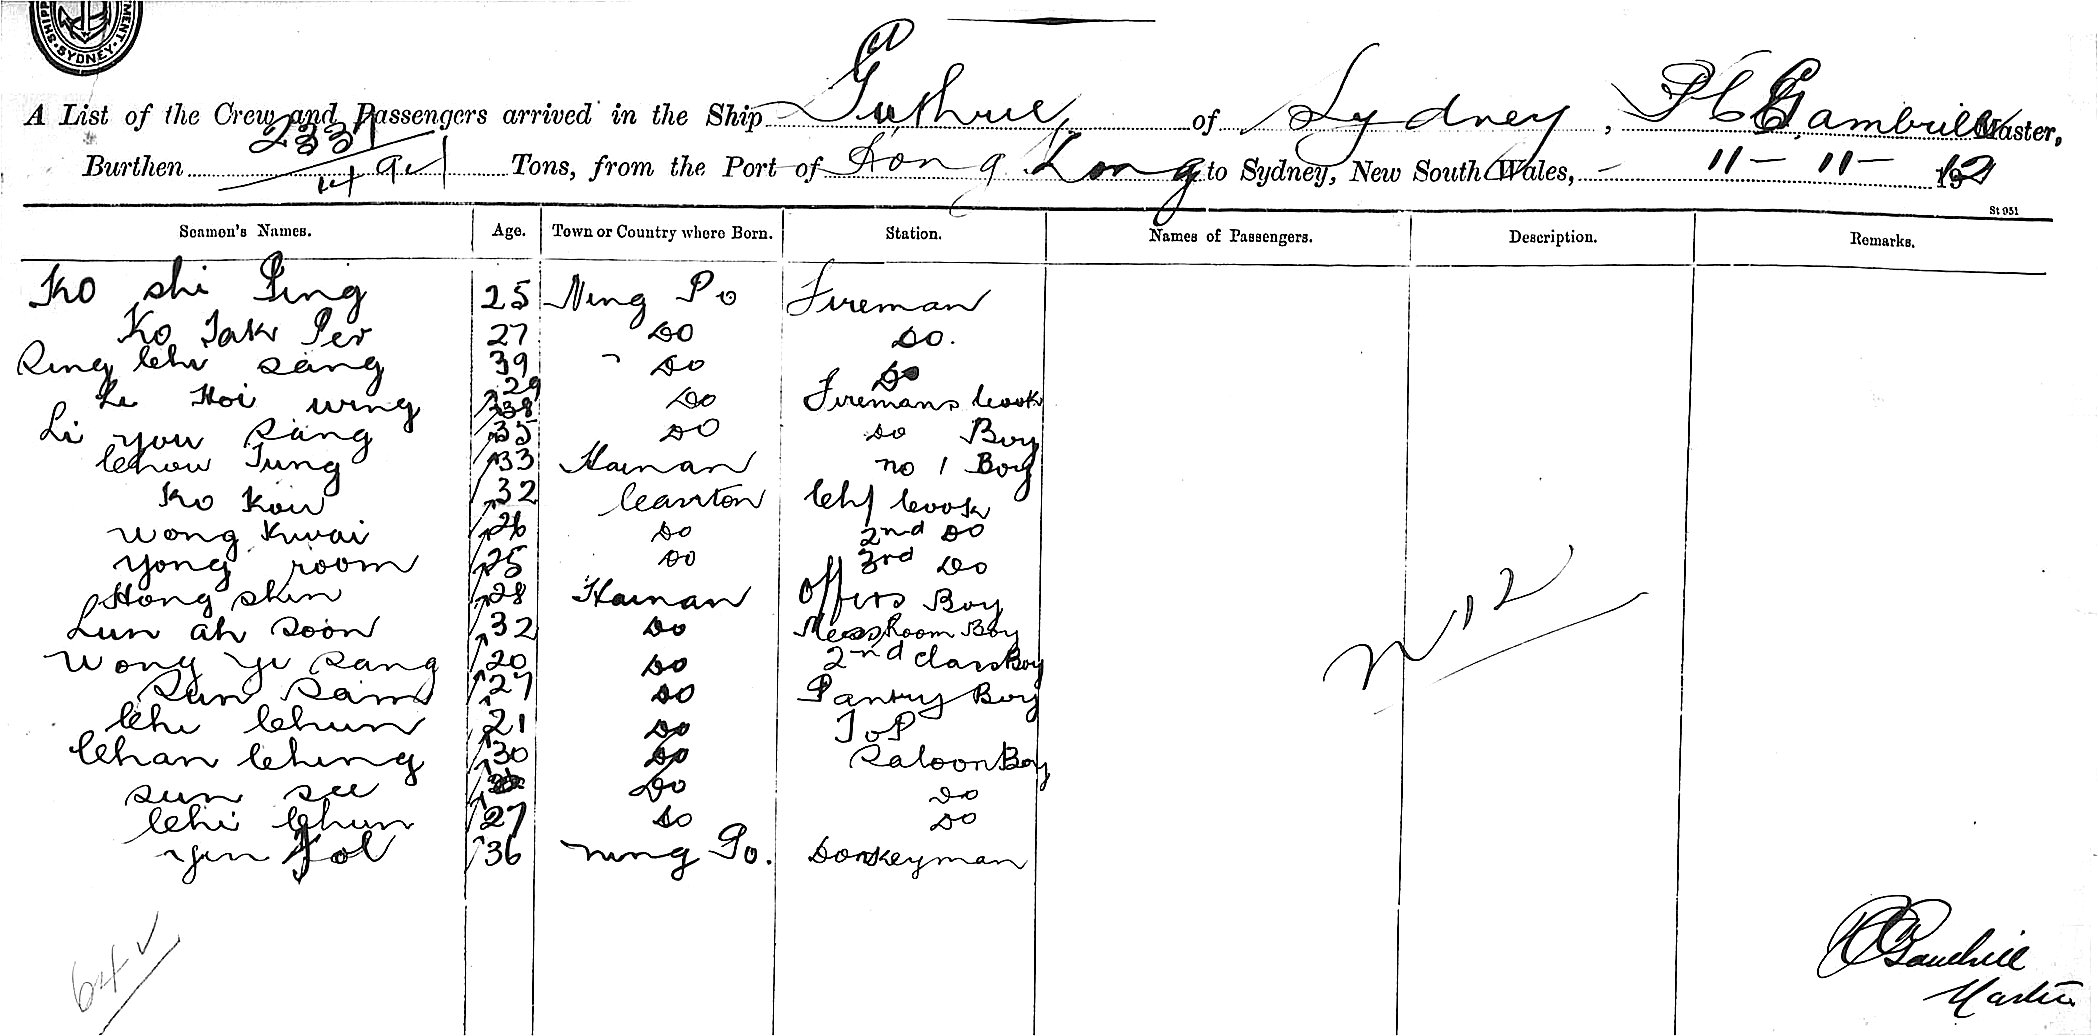 SHIPP MENT. SYDNEY.
A List of the Crew and Passengers arrived in the Ship Guthrie of Sydney, P C Gambrill Master,
Burthen 2331 / 1491 Tons, from the Port of Hong Kong to Sydney, New South Wales, 11-11-1912
St 951
Seamen's Names. Age. Town or Country where Born. Station. Names of Passengers. Description. Remarks.
Ko Shi Ping 25 Ning Po Fireman
Ko Tak Per 27 Do Do.
Sing Chi Sang 39 Do Do
Le Hoi Wing 29 Do Firemans Cook
Li You Sang 35 Do Do Boy
Chow Tung 33 Hainan No 1 Boy
Ko Kow 32 Canton Chf Cook
Wong Kwai 26 Do 2nd Do
Yong Room 25 Do 3rd Do
Hong Shin 28 Hainan Offirs Boy
Lun Ah Soon 32 Do Mess Room Boy
Wong Yi Sang 20 Do 2nd Class Boy
Sun Sam 27 Do Pantry Boy
Chi Chun 21 Do
Chan Ching 30 Do Saloon Boy
Sun See Do Do
Chi Chun 27 Do Do
Yin Fol 36 Ning Po. Donkeyman
12
64
P C Gambrill
Master